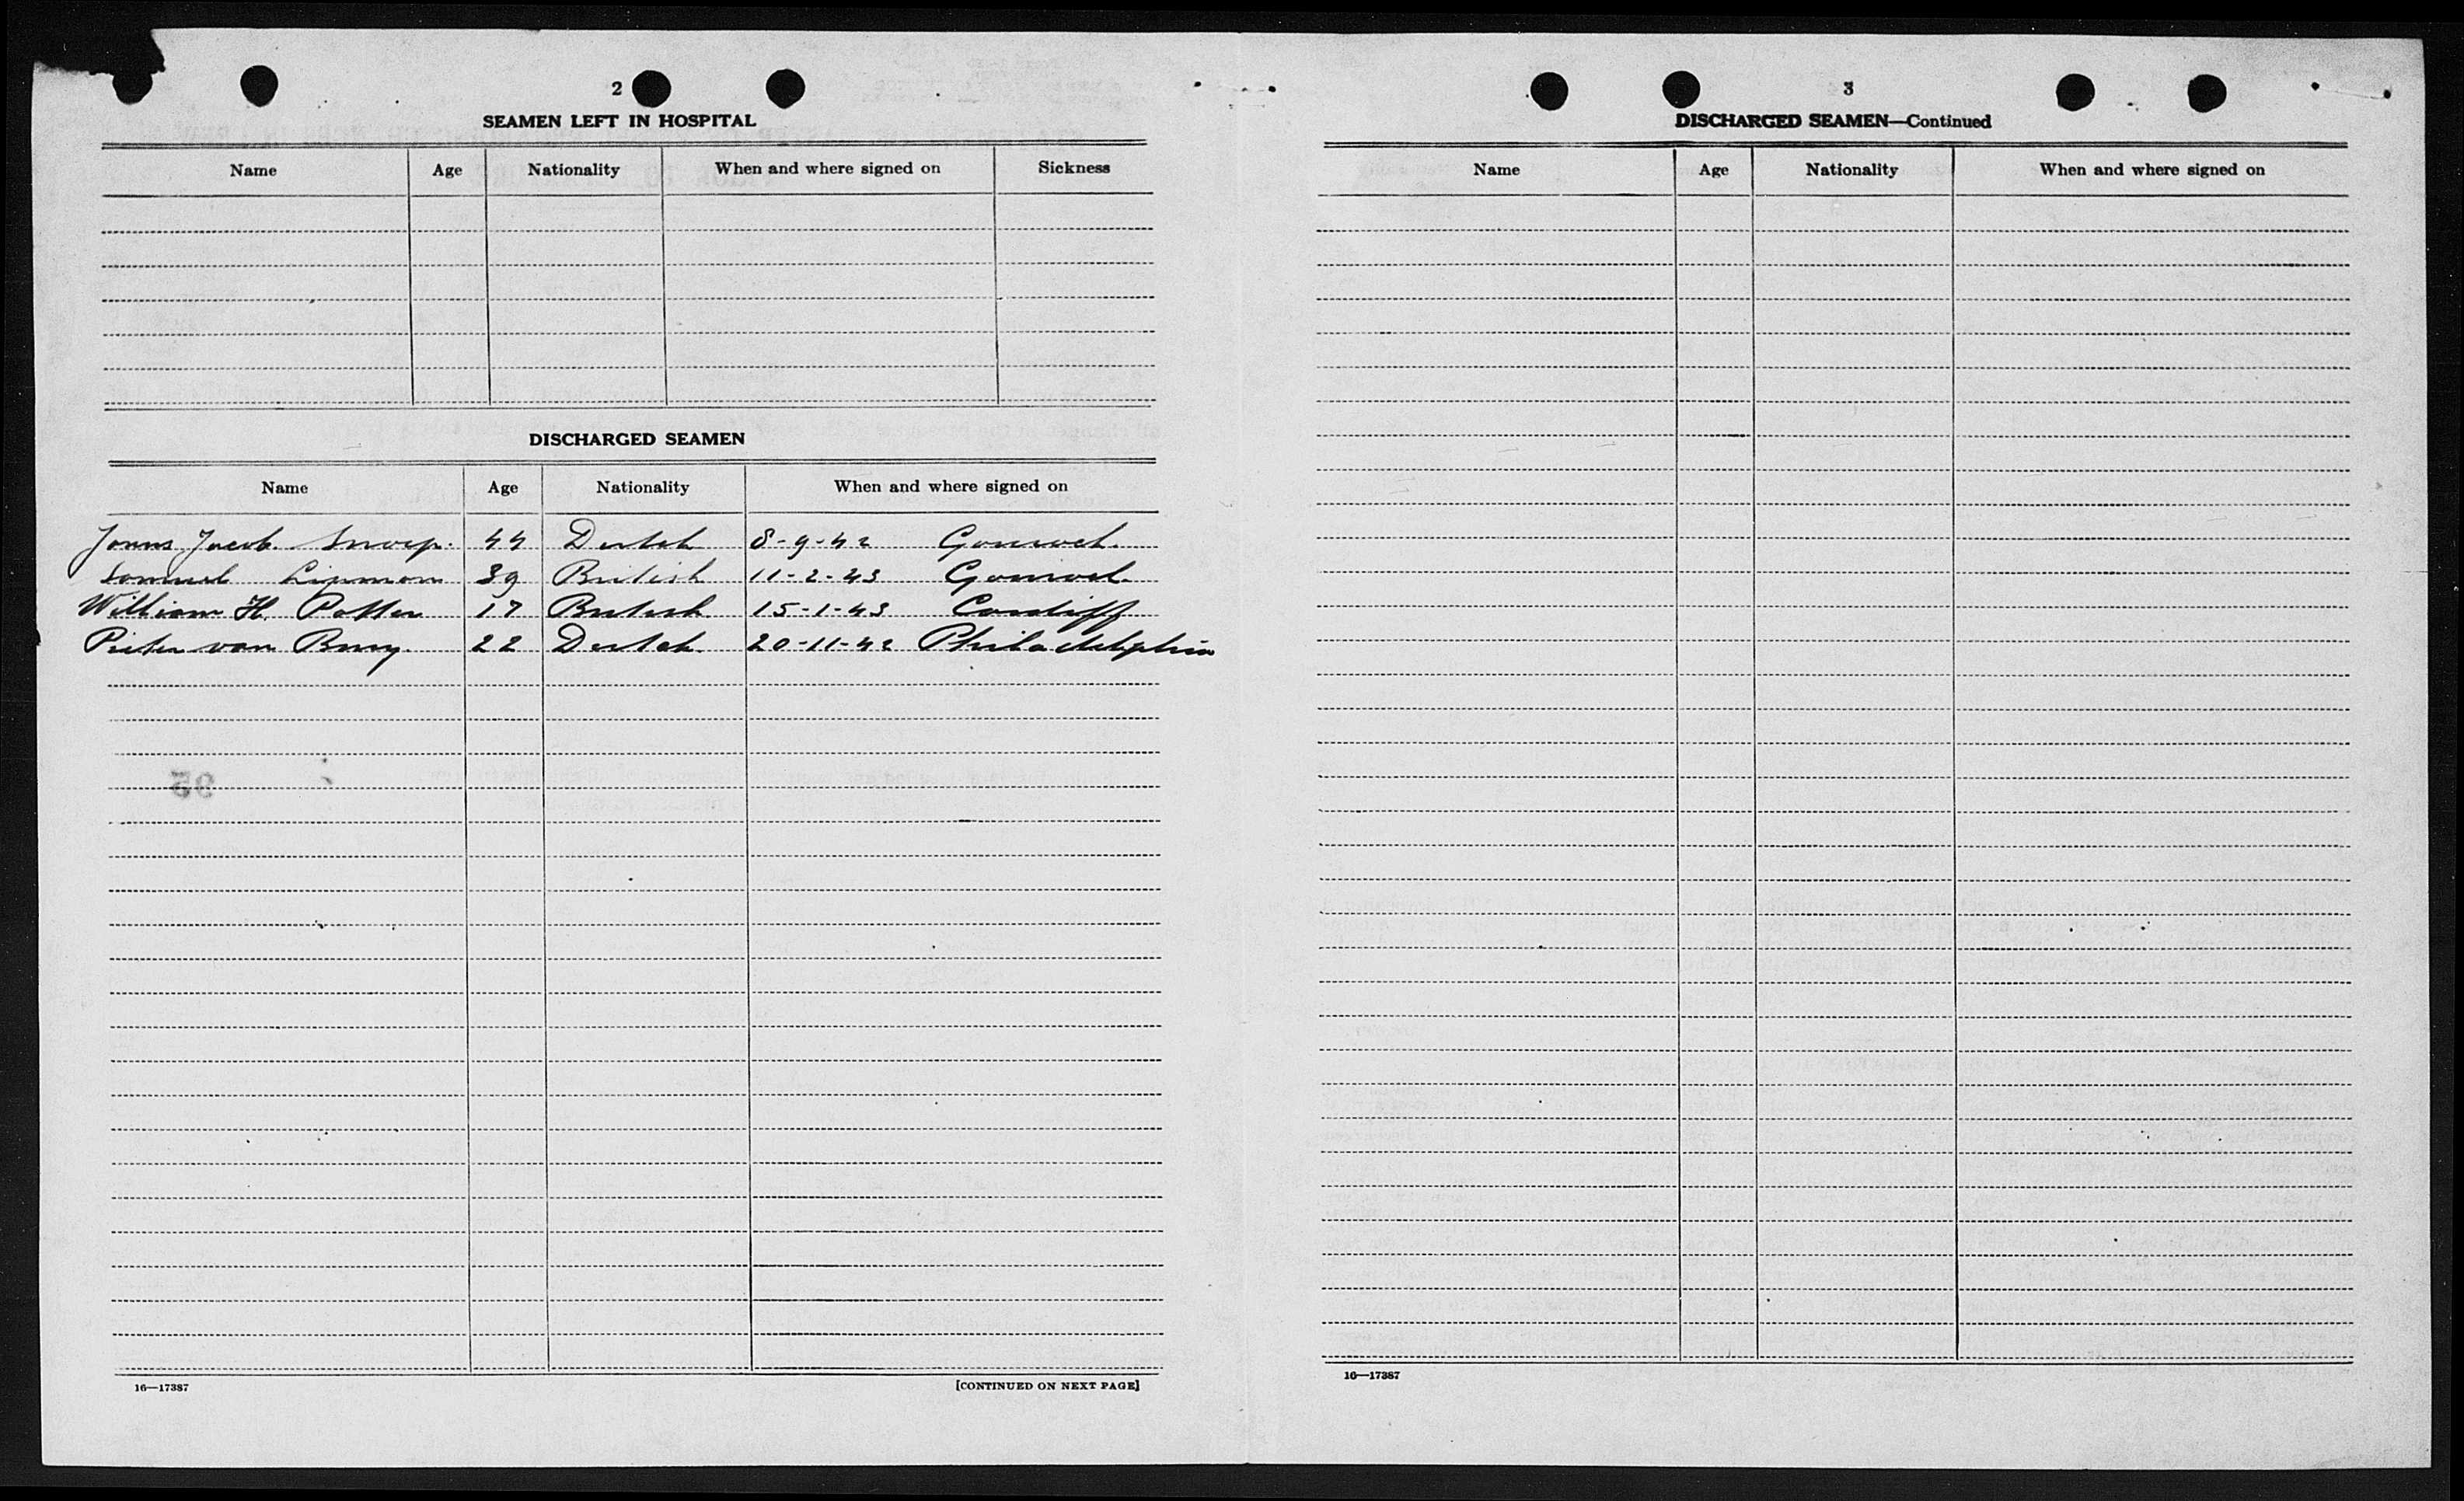 2
SEAMEN LEFT IN HOSPITAL
Name Age Nationality When and where signed on Sickness
DISCHARGED SEAMEN
Name Age Nationality When and where signed on
Jacob Snoep. 44 Dutch 8-9-42 Gourock.
Samuel Lipman 39 British 11-2-43 Gourock.
William H. Potter 17 British 15-1-43 Cardiff
Pieter van 22 Dutch. 20-11-42 Philadelphia
16—17387 [CONTINUED ON NEXT PAGE]
3
DISCHARGED SEAMEN—Continued
Name Age Nationality When and where signed on
16—17387